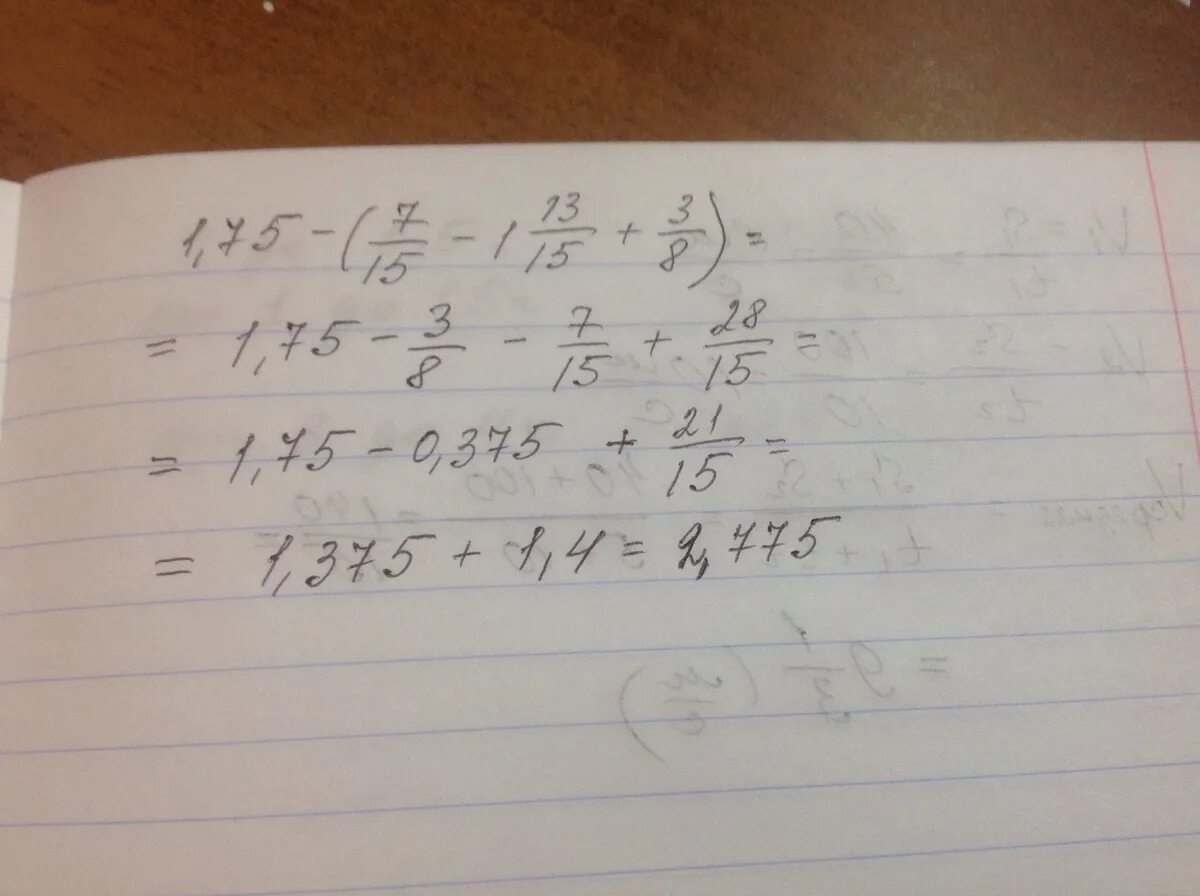 1,75 - (7/15 - 1 13/15 + 3/8) =
= 1,75 - 3/8 - 7/15 + 28/15 =
= 1,75 - 0,375 + 21/15 =
= 1,375 + 1,4 = 2,775